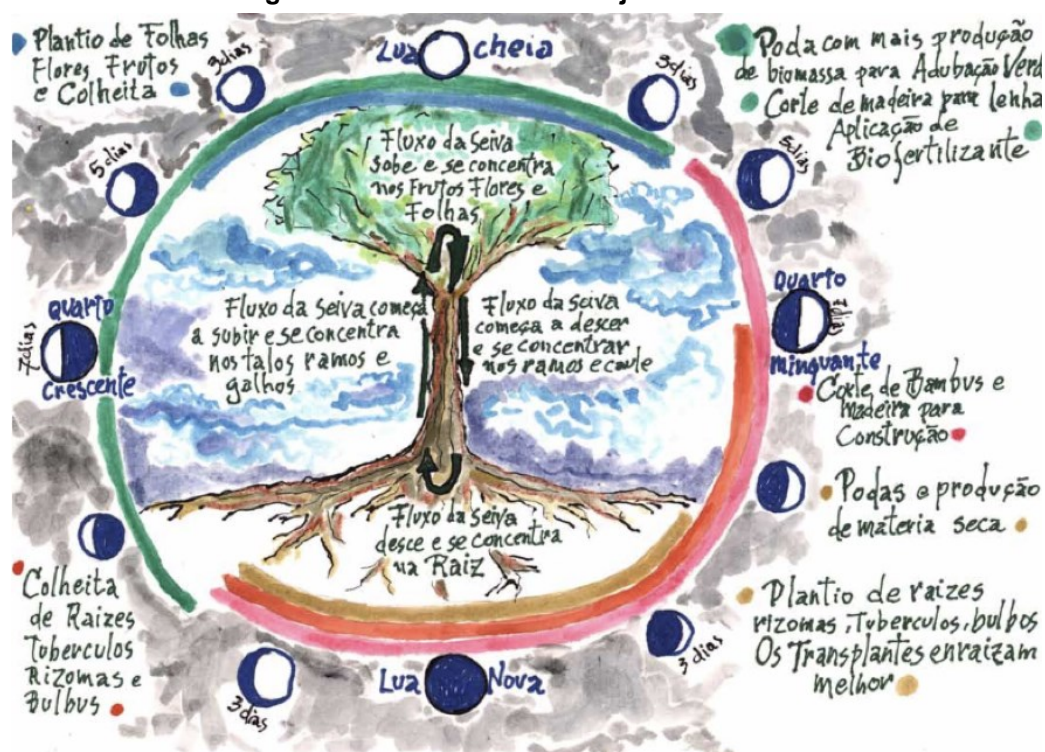 Plantio de Folhas
Flores, Frutos
e Colheita
3 dias
Lua cheia
3 dias
Poda com mais produção
de biomassa para Adubação Verd
Corte de madeira para lenha
Aplicação de
Biofertilizante
5 dias
5 dias
Fluxo da Seiva
Sobe e se concentra
nos Frutos Flores e
Folhas
Quarto
Crescente
7 dias
Fluxo da Seiva começa
a subir e se concentra
nos talos ramos e
galhos
Fluxo da seiva
começa a descer
e se concentrar
nos ramos e caule
Quarto
minguante
7 dias
Corte de Bambus e
madeira para
Construção
Podas e produção
de materia seca
Fluxo da Seiva
desce e se concentra
na Raiz
Colheita
de Raizes
Tuberculos
Rizomas e
Bulbus
Plantio de raizes
rizomas, Tuberculos, bulbos
Os Transplantes enraizam
melhor
3 dias
Lua Nova
3 dias